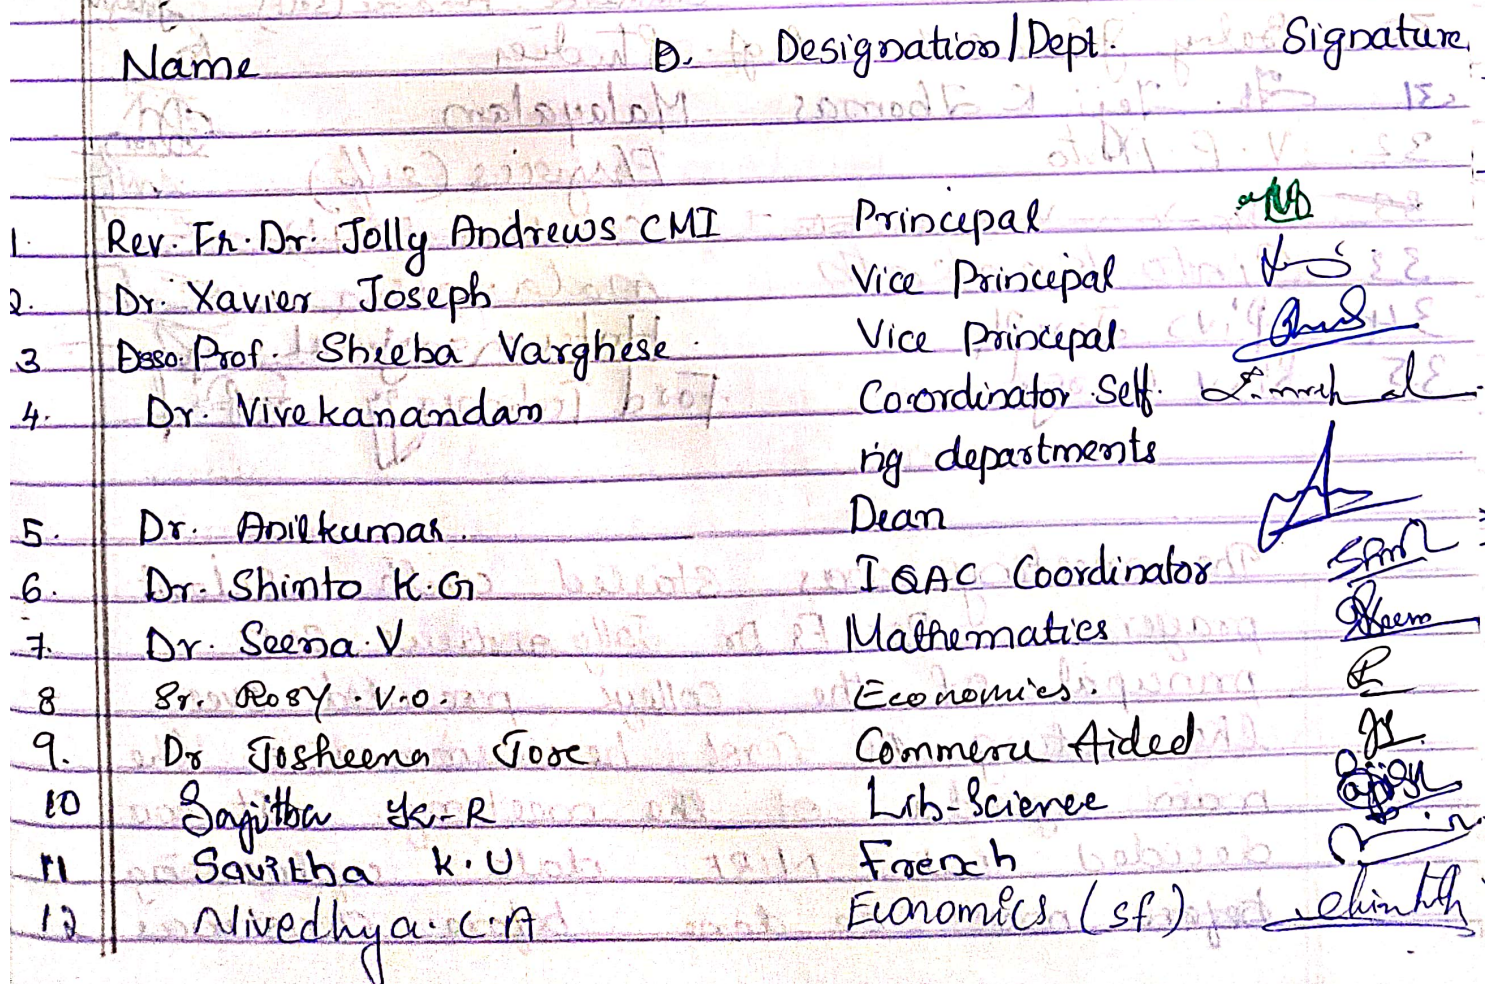 Name D. Designation/Dept. Signature
1. Rev. Fr. Dr. Jolly Andrews CMI Principal
2. Dr. Xavier Joseph Vice Principal
3 Asso. Prof. Sheeba Varghese. Vice Principal
4. Dr. Vivekanandan Co-ordinator Self.
ng departments
5. Dr. Anilkumar. Dean
6. Dr. Shinto K.G IQAC Coordinator
7. Dr. Seena.V Mathematics
8 Sr. Rosy.V.O. Economics.
9. Dr Josheena Jose Commerce Aided
10 Sajitha K.R Lib-Science
11 Savitha K.U French
12 Nivedhya.C.A Economics (sf)